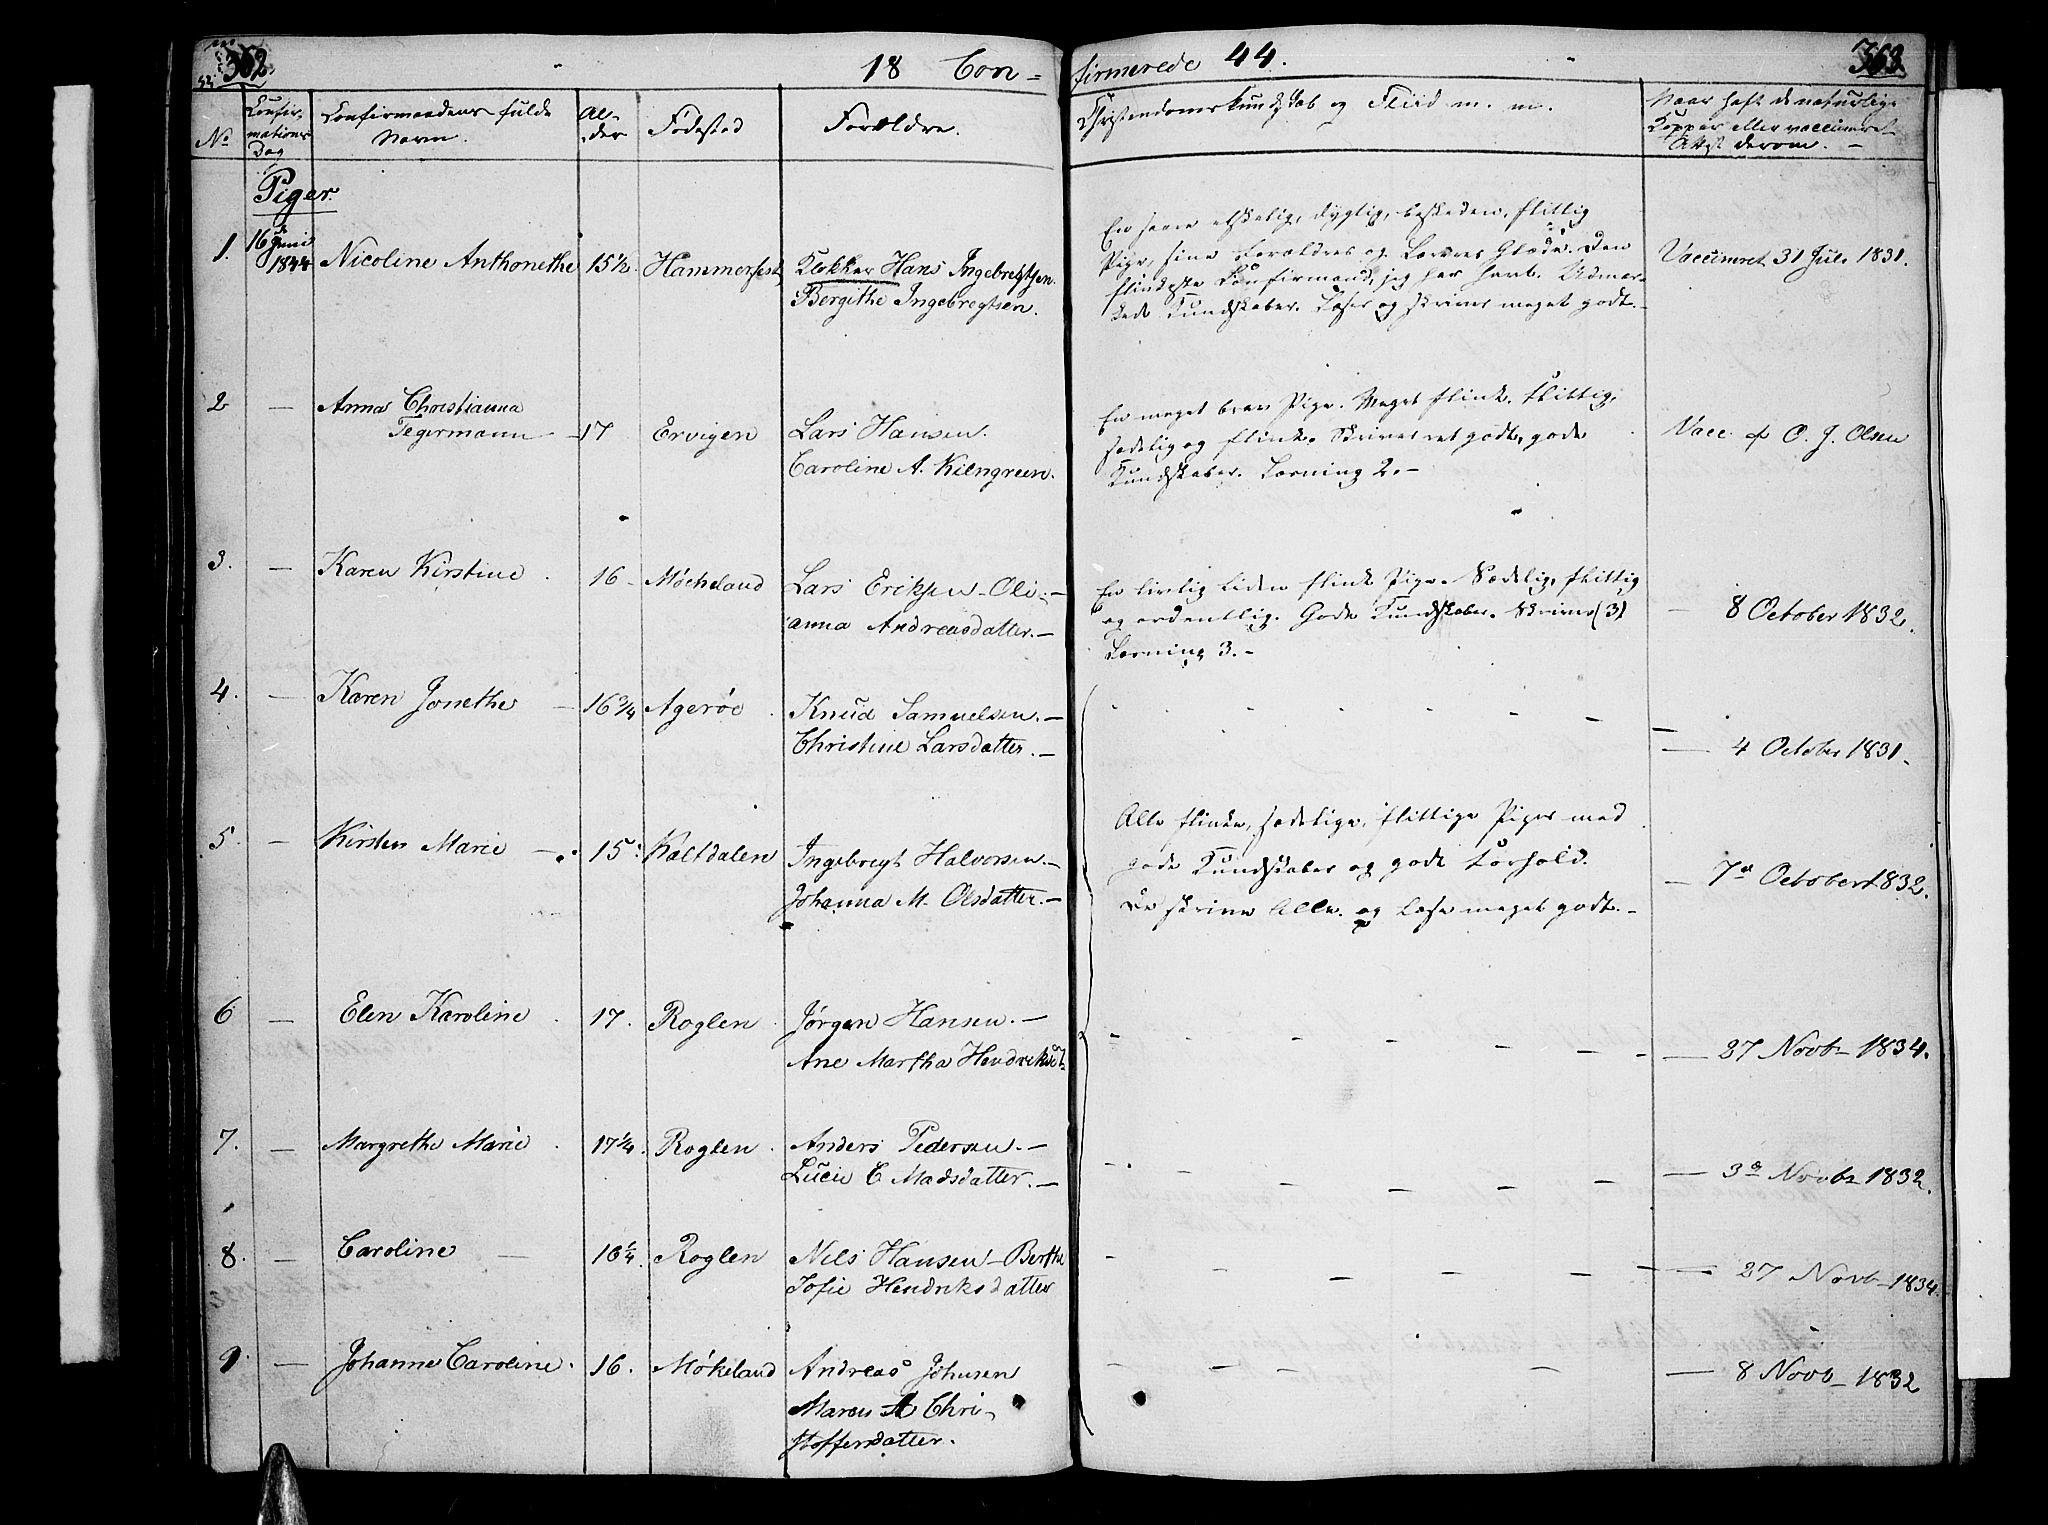 362.
18 Con-
firmerede 44.
363
No
Confir-
mations
Dag
Confirmandens fulde
Navn.
Al-
der
Fødested
Forældre.
Christendomskundskab og Fliid m. m.
Naar haft de naturlige
Kopper eller vaccineret
Attest derom. -
Piger.
1. 16de Juni 1844 Nicoline Anthonethe 15½ Hammerfest Klokker Hans Ingebregtsen.
Bergithe Ingebregtsen.
En særs elskelig, dygtig, beskeden, flittig
Pige, sine Forældres og Læreres Glæde. Den
flinkeste Confirmand, jeg har havt. Udmær-
kede Kundskaber. Læser og skriver meget godt. -
Vaccineret 31 Jul. 1831.
2 — Anna Christianna
Tegermann — 17 Ervigen Lars Hansen.
Caroline A. Kilengreen.
En meget brav Pige. Meget flink. Flittig,
sædelig og flink. Skriver ret godt, gode
Kundskaber. Lærning 2. -
Vacc. af O. J. Olsen
3. — Karen Kirstine. 16 - Møcheland Lars Eriksen - Oli- -
anna Andreasdatter. -
En livlig liden flink Pige. Sædelig, flittig
og ordentlig. Gode Kundskaber. Skriver (3)
Lærning 3. -
— 8 October 1832.
4. — Karen Jonethe — 16¾ Agerøe. Knud Samuelsen. -
Christine Larsdatter. -
— 4 October 1831.
5. — Kirsten Marie — 15. Kaltdalen Ingebregt Halvorsen. -
Johanna M. Olsdatter. -
Alle flinke, sædelige, flittige Piger med
gode Kundskaber og godt Forhold.
De skrive Alle og læse meget godt. -
— 7de October 1832.
6 — Elen Karoline. 17. Roglen. Jørgen Hansen. -
Ane Martha Hendriksdt
— 27 Novbr 1834.
7. — Margrethe Marie. 17¼. Roglen. Anders Pedersen. -
Lucie C Madsdatter. -
— 3de Novbr 1832.
8. — Caroline — 16¼. Roglen Nils Hansen - Berthe
Sofie Hendriksdatter
— 27 Novb - 1834.
9. — Johanne Caroline. 16. Møkeland Andreas Johnsen
Maren A Chri-
stoffersdatter.
— 8 Novb - 1832